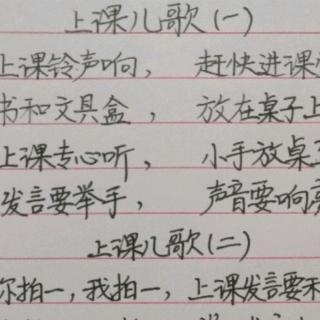 上课儿歌(一)
上课铃声响， 赶快进课
书和文具盒， 放在桌子上
上课专心听， 小手放桌
发言要举手， 声音要响亮
上课儿歌(二)
你拍一,我拍一,上课发言要